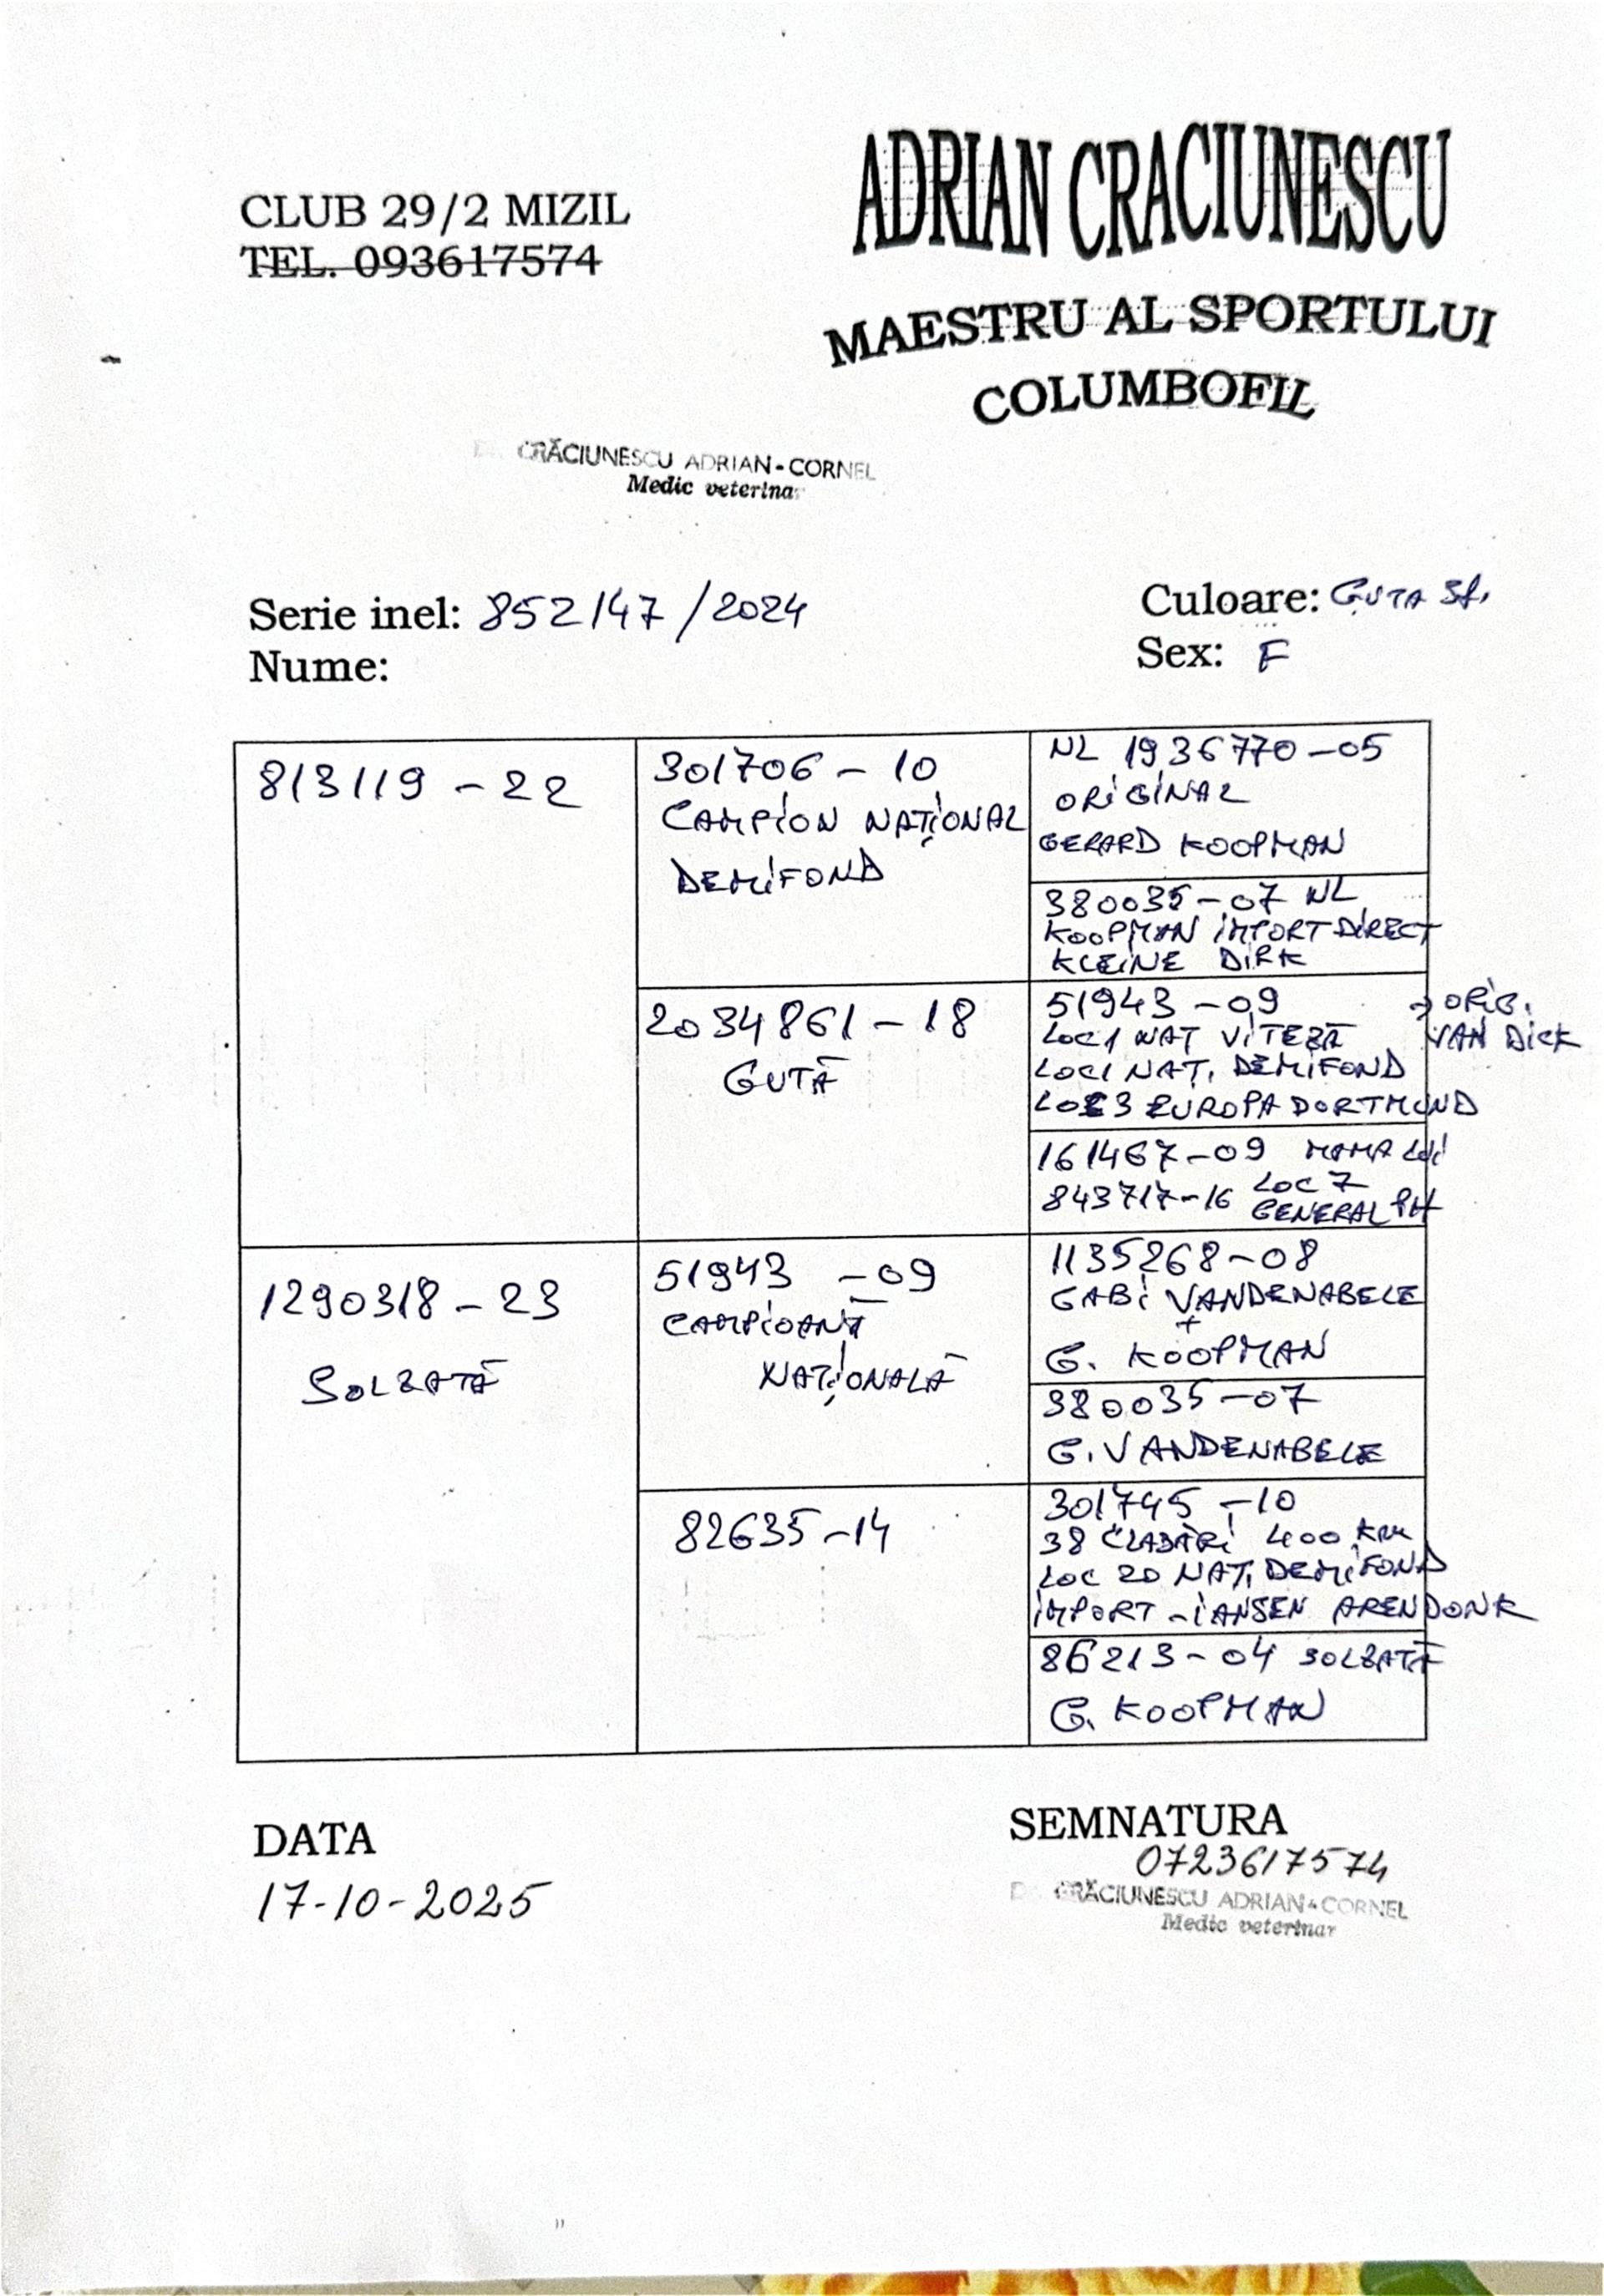 CLUB 29/2 MIZIL
TEL. 093617574
ADRIAN CRACIUNESCU
MAESTRU AL SPORTULUI
COLUMBOFIL
CRĂCIUNESCU ADRIAN-CORNEL
Medic veterinar
Serie inel: 852147/2024
Culoare: GUTA Sf.
Nume:
Sex: F
813119-22
301706-10
CAMPION NAȚIONAL
DEMIFOND
NL 1936770-05
ORIGINAL
GERARD KOOPMAN
380035-07 NL
KOOPMAN IMPORT DIRECT
KLEINE DIRK
2034861-18
GUTĂ
51943-09 → ORIG.
LOC1 NAT VITEZĂ VAN DICK
LOC1 NAȚ. DEMIFOND
LOC3 EUROPA DORTMUND
161467-09 MAMA LUI
843717-16 LOC 7
GENERAL PH
1290318-23
SOLZATĂ
51943-09
CAMPIOANĂ
NAȚIONALĂ
1135268-08
GABI VANDENABELE
+
G. KOOPMAN
380035-07
G. VANDENABELE
82635-14
301745-10
38 CLASĂRI 400 KM
LOC 20 NAȚ. DEMIFOND
IMPORT-IANSEN ARENDONK
86213-04 SOLZATĂ
G. KOOPMAN
DATA
17-10-2025
SEMNATURA
0723617574
CRĂCIUNESCU ADRIAN-CORNEL
Medic veterinar